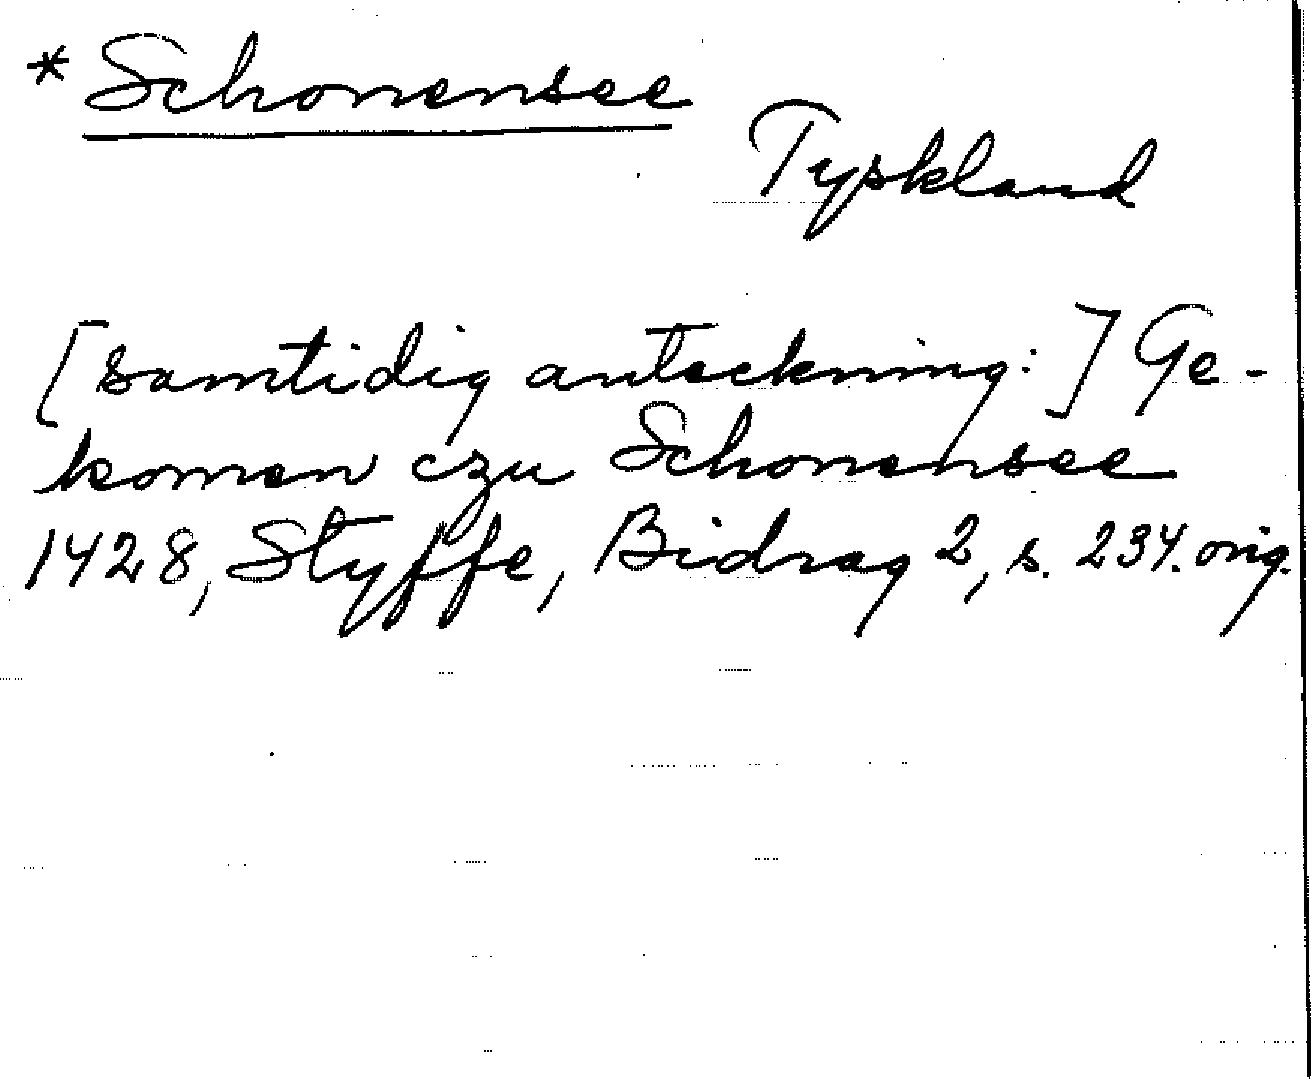 * Schonensee
Tyskland
[samtidig anteckning:] Ge-
komen czu Schonensee
1428, Styffe, Bidrag 2, s. 234. orig.